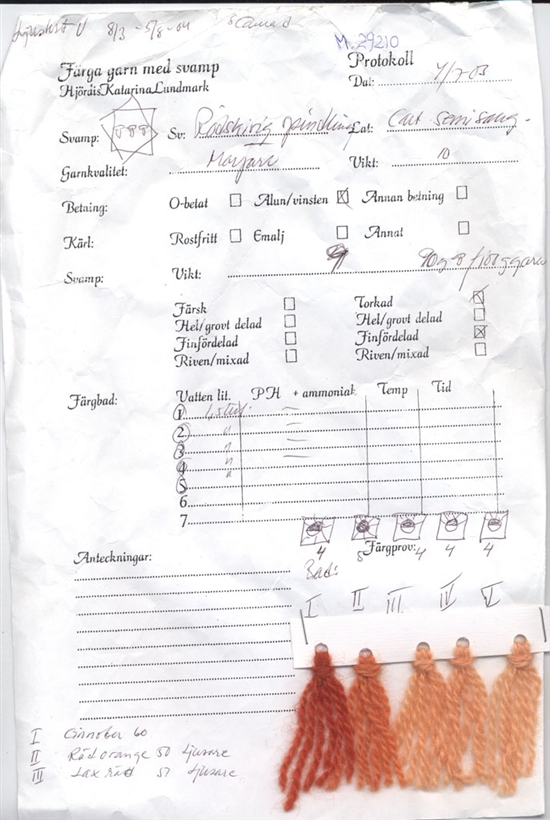 8/3 - 5/8-04
M. 29210
Färga garn med svamp
Protokoll
Hjördis Katarina Lundmark
Dat: 4/7-03
Svamp: Sv: Rödskivig Lat: Cort semisang.
Garnkvalitet: Vikt: 10
Betning: O-betat Alun/vinsten Annan betning
Kärl: Rostfritt Emalj Annat
Svamp: Vikt:
Färsk Torkad
Hel/grovt delad Hel/grovt delad
Finfördelad Finfördelad
Riven/mixad Riven/mixad
Färgbad: Vatten lit. PH + ammoniak Temp Tid
1
2 "
3 "
4 "
5 "
6
7
Färgprov:
4 8 4 4 4
Anteckningar:
Bad:
I II III IV V
I Cinnober 60
II Rödorange 50 ljusare
III Lax röd 57 ljusare